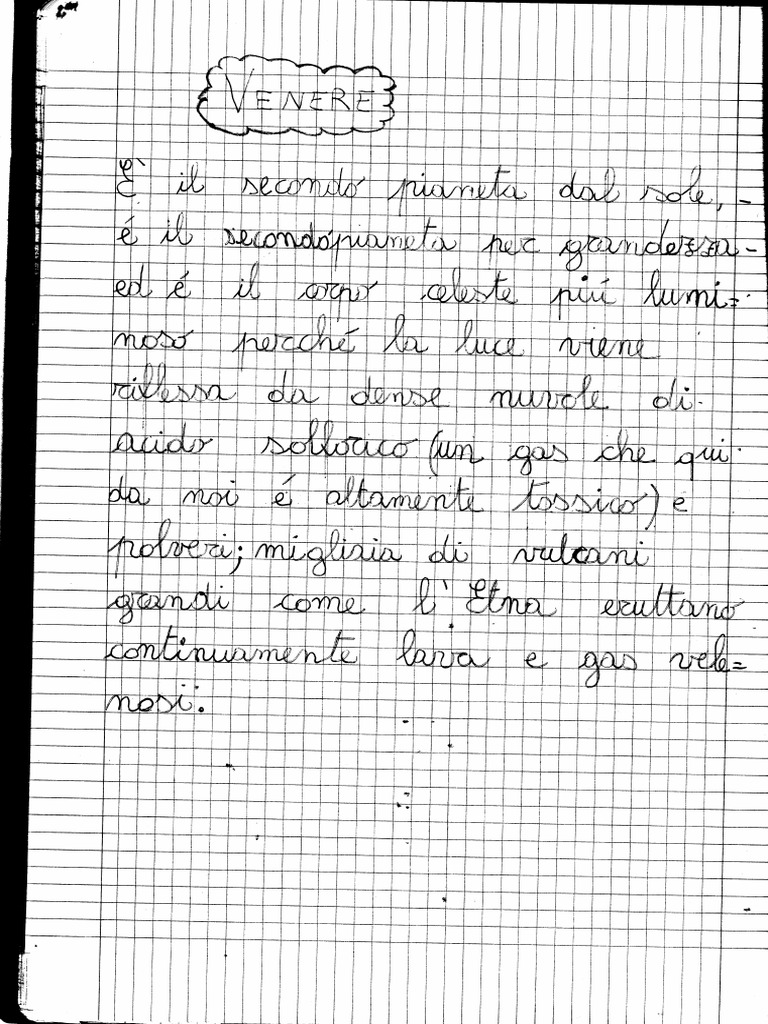 VENERE
E' il secondo pianeta dal sole,
é il secondo pianeta per grandezza
ed é il corpo celeste piú lumi=
noso perché la luce viene
riflessa da dense nuvole di
acido solforico (un gas che qui
da noi é altamente tossico) e
polveri; migliaia di vulcani
grandi come l'Etna eruttano
continuamente lava e gas vele=
nosi.